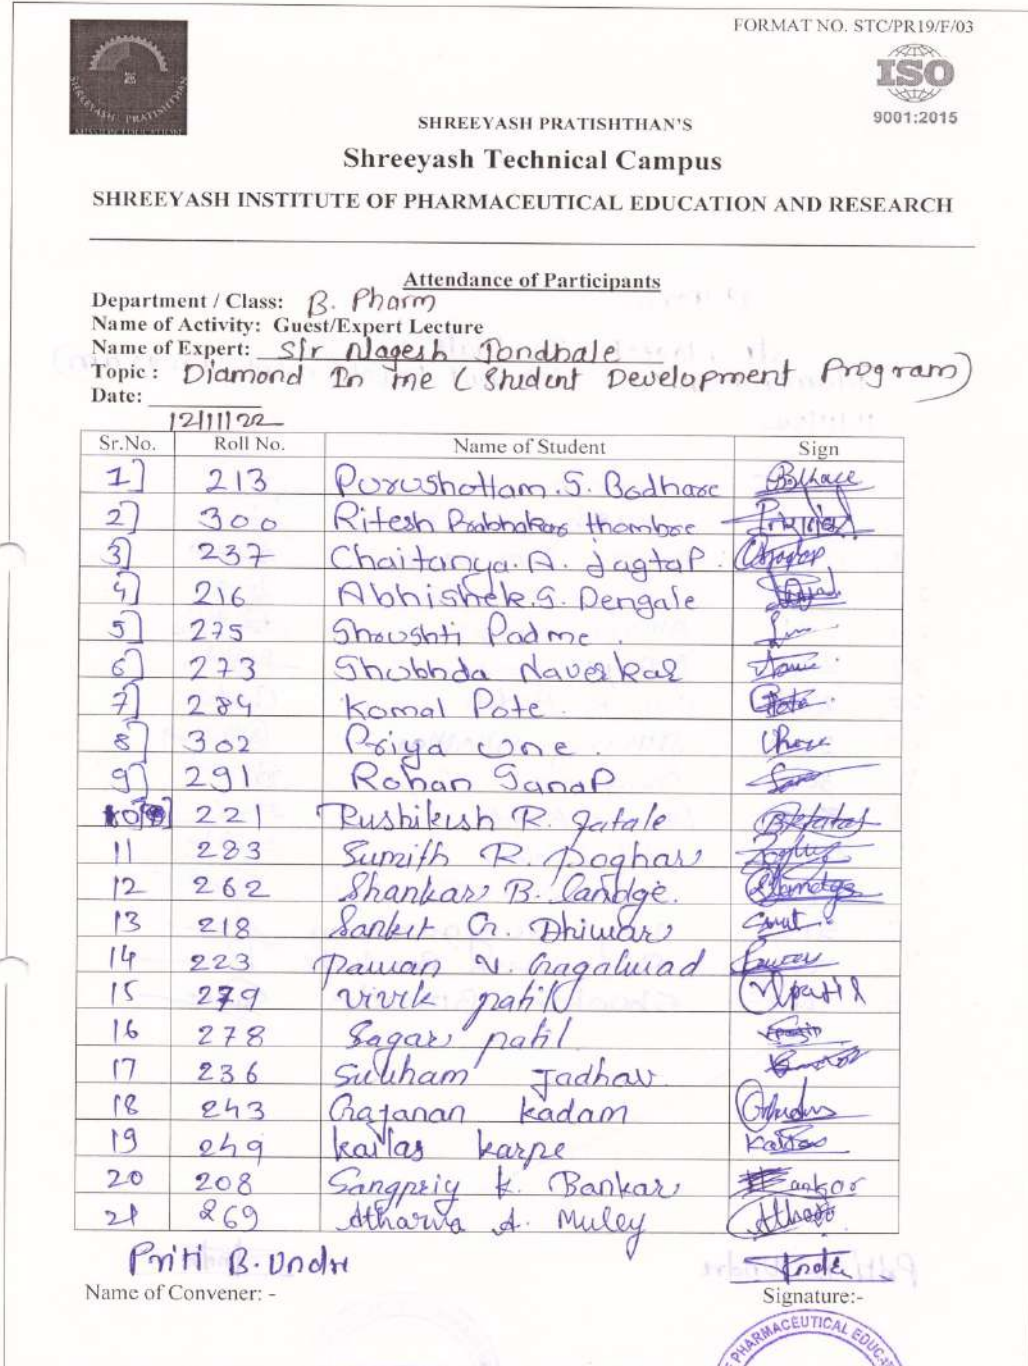 FORMAT NO. STC/PR19/F/03
ISO
9001:2015
SHREEYASH PRATISHTHAN
SHREEYASH PRATISHTHAN'S
Shreeyash Technical Campus
SHREEYASH INSTITUTE OF PHARMACEUTICAL EDUCATION AND RESEARCH
Attendance of Participants
Department / Class: B. Pharm
Name of Activity: Guest/Expert Lecture
Name of Expert: Sir Nagesh Tondhale
Topic : Diamond In me (Student Development Program)
Date:
12/11/22
Sr.No. Roll No. Name of Student Sign
1] 213 Purushottam.S. Badhare
2] 300 Ritesh Prabhakar thombre
3] 237 Chaitanya.A. Jagtap.
4] 216 Abhishek.S. Dengale
5] 275 Shrushti Padme.
6] 273 Shubhda Naverkar
7] 284 Komal Pote.
8] 302 Priya One
9] 291 Rohan Sanap
10] 221 Rushikesh R. Jatale
11 283 Sumith R. Poghar
12 262 Shankar B. Landge.
13 218 Sanket G. Dhiwar
14 223 Pawan V. Gagalwad
15 279 vivek patil Vpatil
16 278 Sagar patil
17 236 Subham Jadhav
18 243 Gajanan kadam
19 249 kailas karpe Kailas
20 208 Sangpriy k. Bankar Bankar
21 269 Atharva A. Muley
Priti B. Undre
Name of Convener: - Signature:-
PHARMACEUTICAL